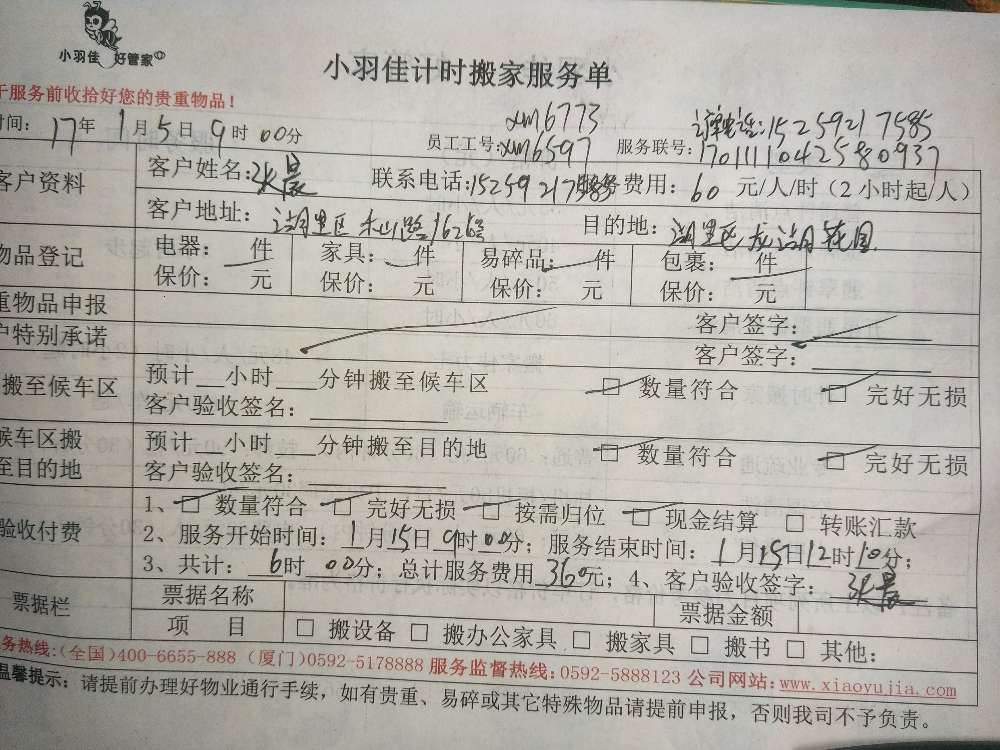 小羽佳 好管家
小羽佳计时搬家服务单
于服务前收拾好您的贵重物品！
时间：17年1月5日9时00分 员工工号：xm6773 xm6597 订单电话：15259217585
服务联号：1701111042580937
客户资料 客户姓名：冰晨 联系电话：15259217585 服务费用：60元/人/时（2小时起/人）
客户地址：湖里区禾山路1626号 目的地：湖里区龙湖花园
物品登记 电器：件 家具：件 易碎品：件 包裹：件
保价：元 保价：元 保价：元 保价：元
重物品申报 客户签字：
户特别承诺 客户签字：
搬至候车区 预计__小时___分钟搬至候车区 □ 数量符合 □ 完好无损
客户验收签名：
候车区搬至目的地 预计__小时___分钟搬至目的地 □ 数量符合 □ 完好无损
客户验收签名：
验收付费 1、□ 数量符合 □ 完好无损 □ 按需归位 □ 现金结算 □ 转账汇款
2、服务开始时间：1月15日9时00分；服务结束时间：1月15日12时10分；
3、共计：6时00分；总计服务费用360元；4、客户验收签字：冰晨
票据栏 票据名称 票据金额
项 目 □ 搬设备 □ 搬办公家具 □ 搬家具 □ 搬书 □ 其他：
务热线：（全国）400-6655-888（厦门）0592-5178888 服务监督热线：0592-5888123 公司网站：www.xiaoyujia.com
温馨提示：请提前办理好物业通行手续，如有贵重、易碎或其它特殊物品请提前申报，否则我司不予负责。